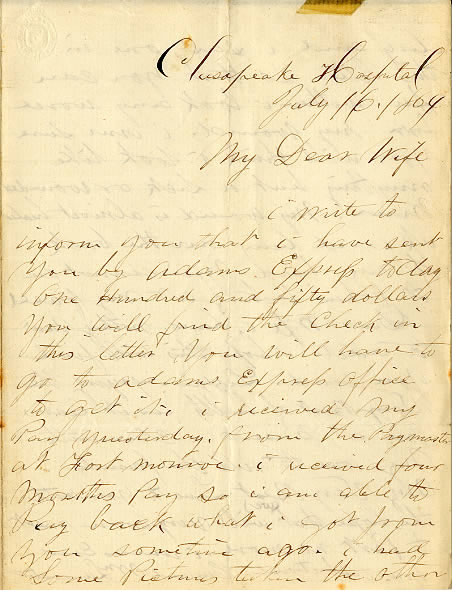 Chesapeake Hospital
July 16, 1864
My Dear Wife
i write to
inform you that i have sent
you by adams Express today
One Hundred and fifty dollars
You will find the Check in
this letter You will have to
go to adams Express office
to get it, i received my
Pay yuesterday. from the Paymaster
at Fort monroe i received four
Months Pay so i am able to
Pay back what i got from
you sometime ago. i had
some Pictures taken the other